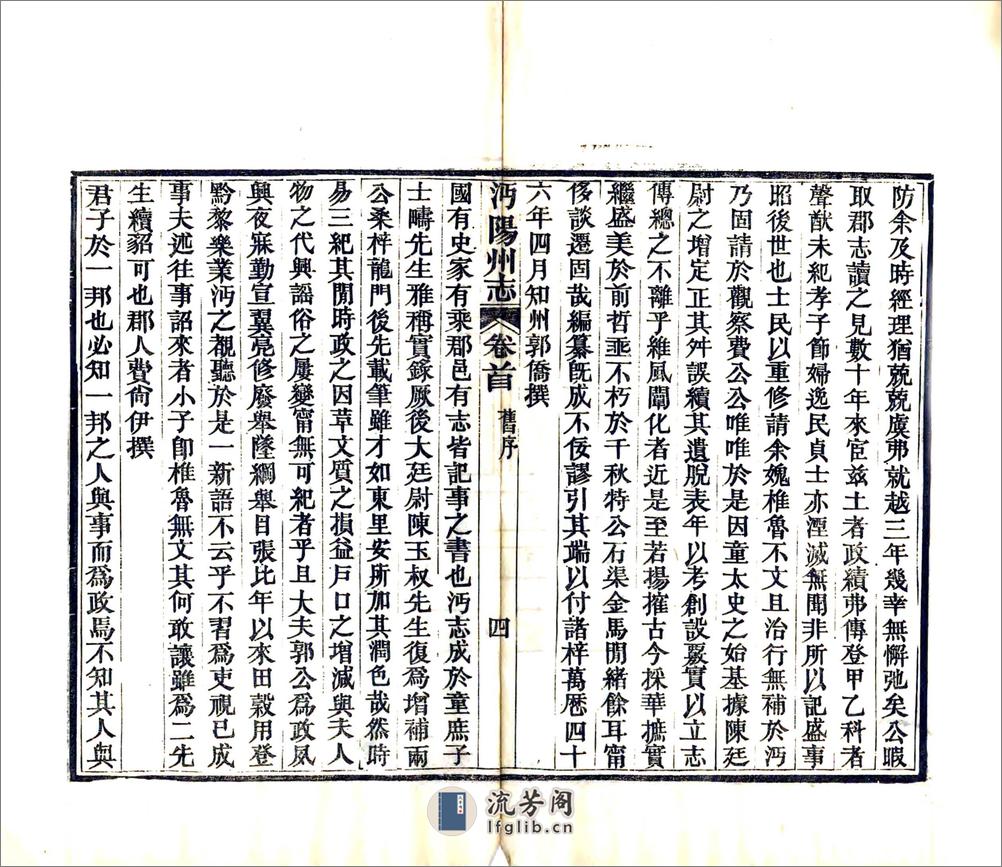 防余及時經理猶兢兢虞弗就越三年幾幸無懈弛矣公暇
取郡志讀之見數十年來宦茲土者政績弗傳登甲乙科者
聲猷未紀孝子節婦逸民貞士亦湮滅無聞非所以記盛事
昭後世也士民以重修請余媿椎魯不文且治行無補於沔
乃固請於觀察費公公唯唯於是因童太史之始基據陳廷
尉之增定正其舛誤續其遺脫表年以考創設覈實以立志
傳總之不離乎維風闡化者近是至若揚搉古今採華摭實
繼盛美於前哲垂不朽於千秋特公石渠金馬閒緒餘耳甯
侈談遷固哉編纂旣成不佞謬引其端以付諸梓萬曆四十
六年四月知州郭僑撰
沔陽州志 卷首 舊序 四
國有史家有乘郡邑有志皆記事之書也沔志成於童庶子
士疇先生雅稱實錄厥後大廷尉陳玉叔先生復爲增補兩
公桑梓龍門後先載筆雖才如東里安所加其潤色哉然時
易三紀其閒時政之因革文質之損益戶口之增減與夫人
物之代興謠俗之屢變甯無可紀者乎且大夫郭公爲政夙
興夜寐勤宣翼亮修廢舉墜綱舉目張比年以來田穀用登
黔黎樂業沔之視聽於是一新語不云乎不習爲吏視已成
事夫述往事詔來者小子卽椎魯無文其何敢讓雖爲二先
生續貂可也郡人費尙伊撰
君子於一邦也必知一邦之人與事而爲政焉不知其人與
流芳阁
lfglib.cn